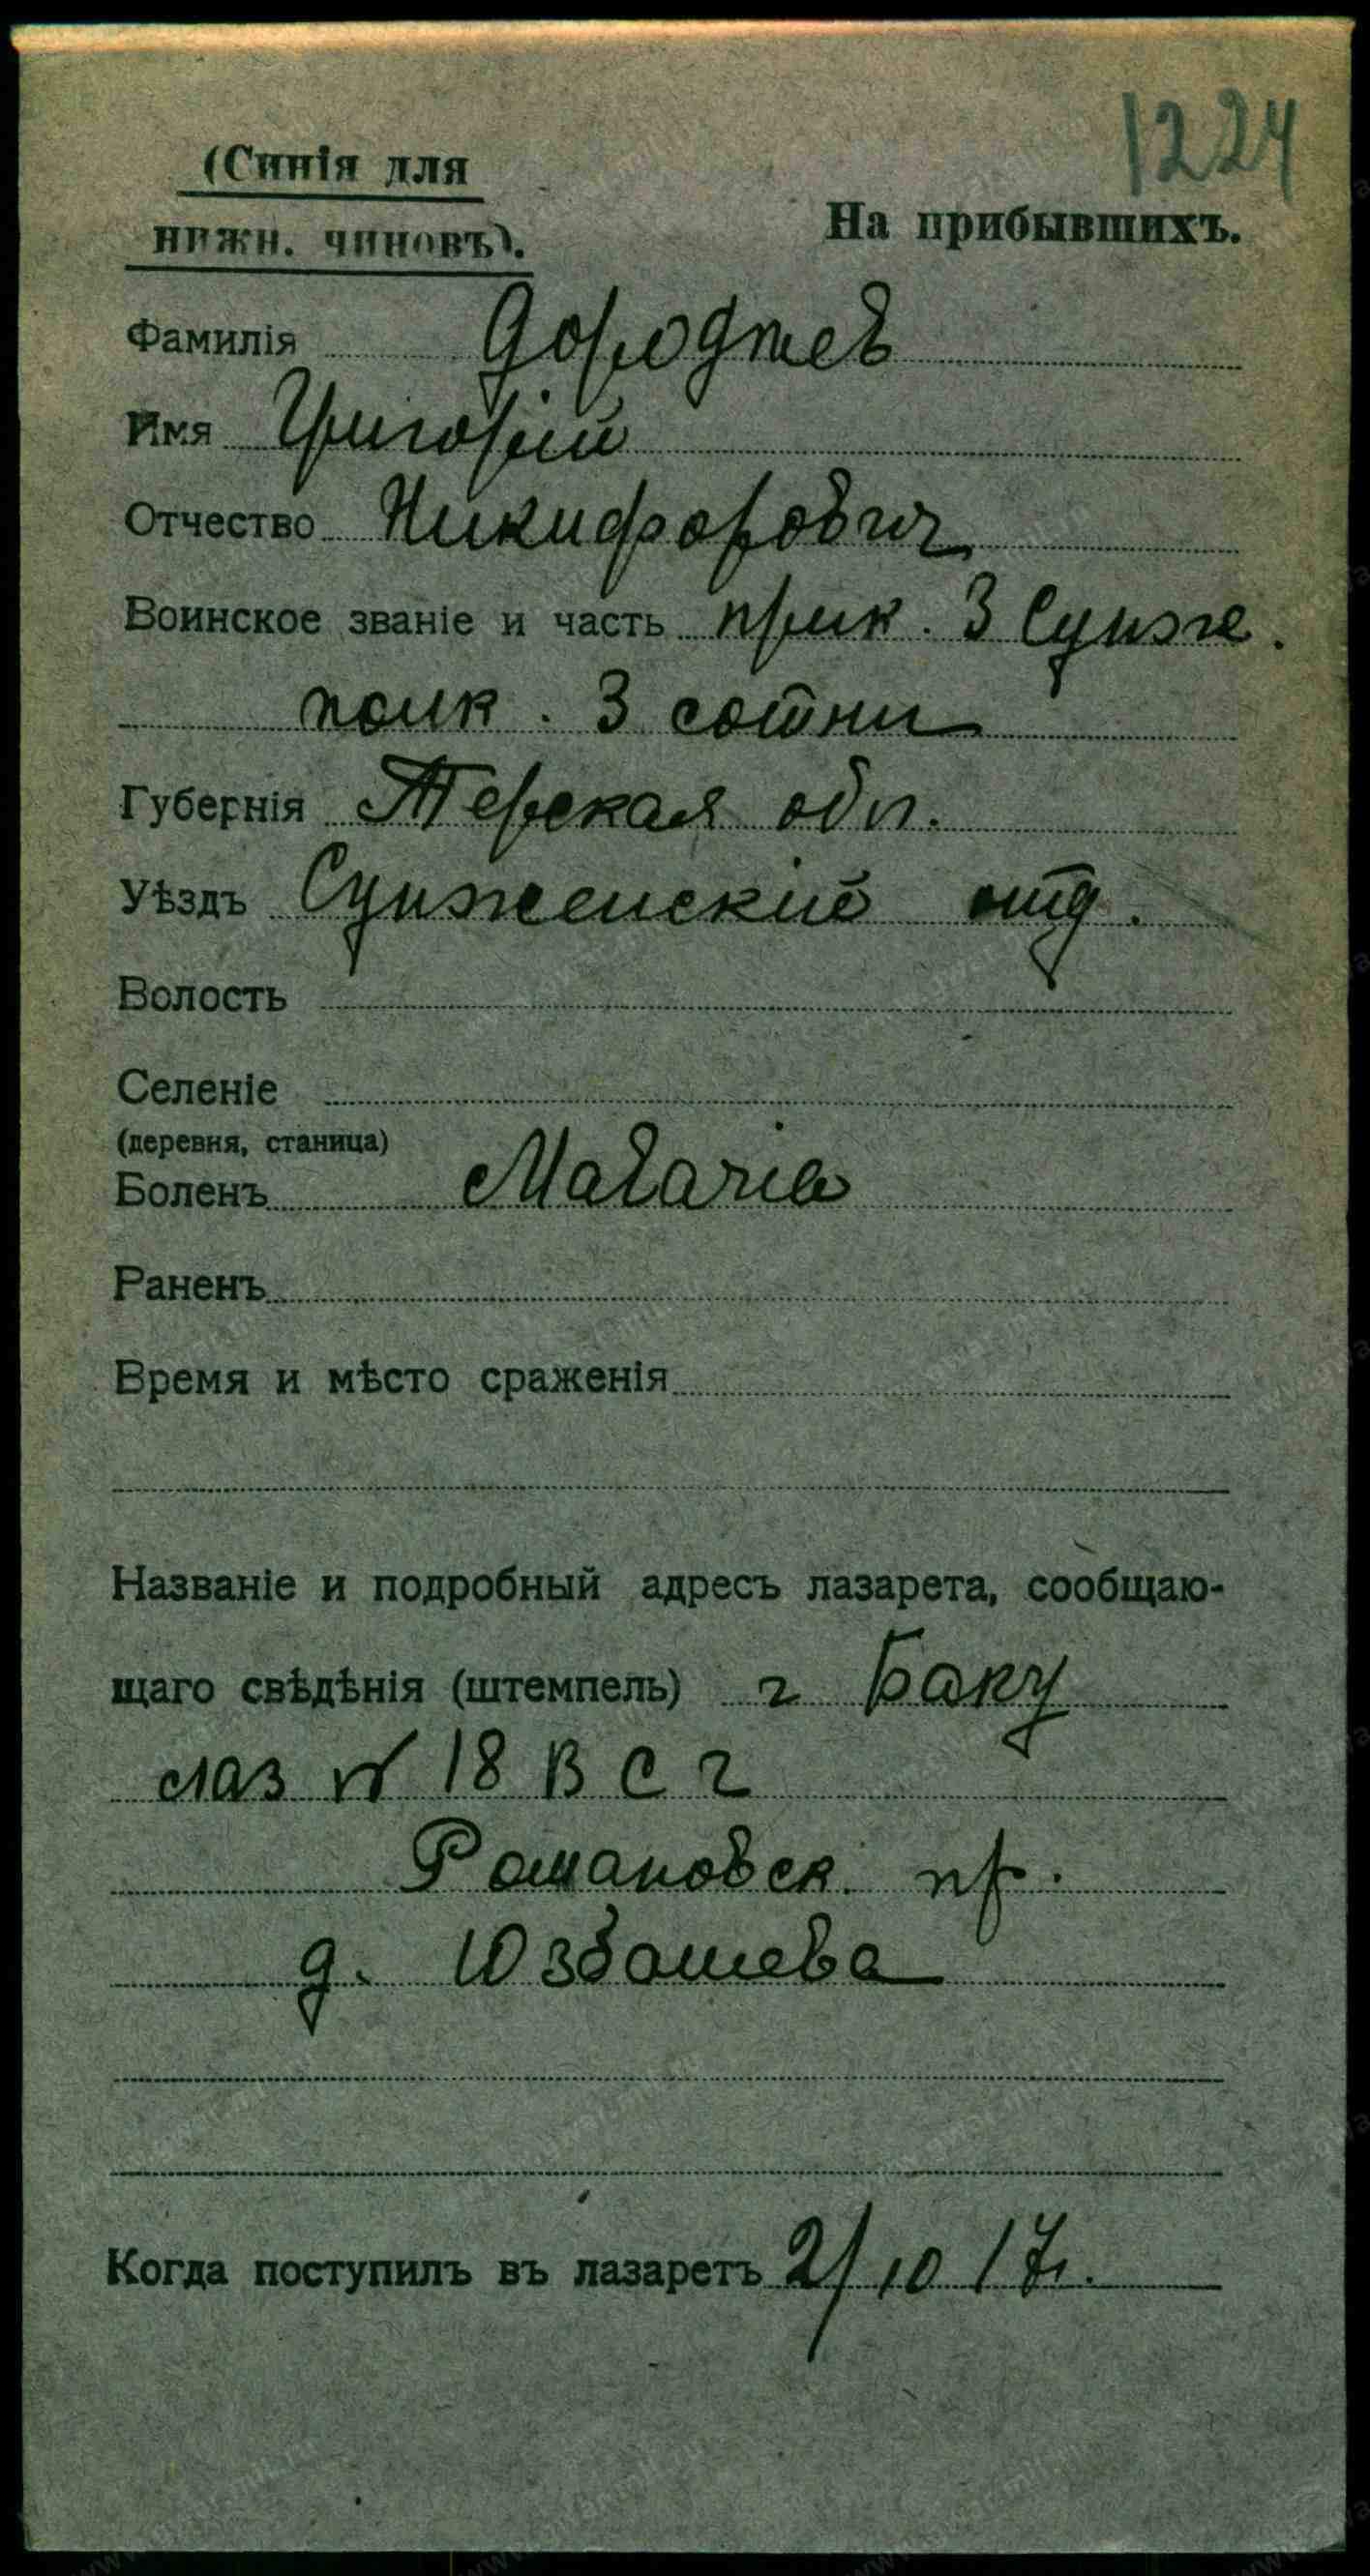 1224
(Синія для
нижн. чиновъ).
На прибывшихъ.
Фамилія Дороджев
Имя Григорій
Отчество Никифорович
Воинское званіе и часть прик. 3 Сунже.
полк. 3 сотни
Губернія Терская обл.
Уѣздъ Сунженскій отд.
Волость
Селеніе
(деревня, станица)
Боленъ Malaria
Раненъ
Время и мѣсто сраженія
Названіе и подробный адресъ лазарета, сообщаю-
щаго свѣдѣнія (штемпель) г Баку
лаз № 18 В С Г
Романовск. пр.
д. Юзбашева
Когда поступилъ въ лазаретъ 2/10 17г.